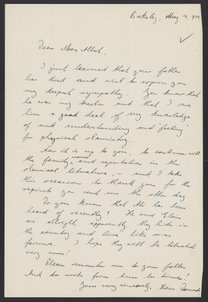 Berkeley, May
Dear Max Albert,
I just learned that your father
has died and wish to express you
my deepest sympathy. You know that
he was my teacher and that I owe
him a good deal of my knowledge
of and understanding and feeling
for physical chemistry.
Now it is up to you to continue with
the family's and reputation in the
chemical literature, and I take
this occasion to thank you for the
reprints you sent me the other day.
Do you know that He has been
heard of recently? He and
are allright apparently they hide in
the country and live like
farmer. I hope they will be liberated
very soon!
Please remember me to your father
And do write from time to time!
Yours very sincerely,